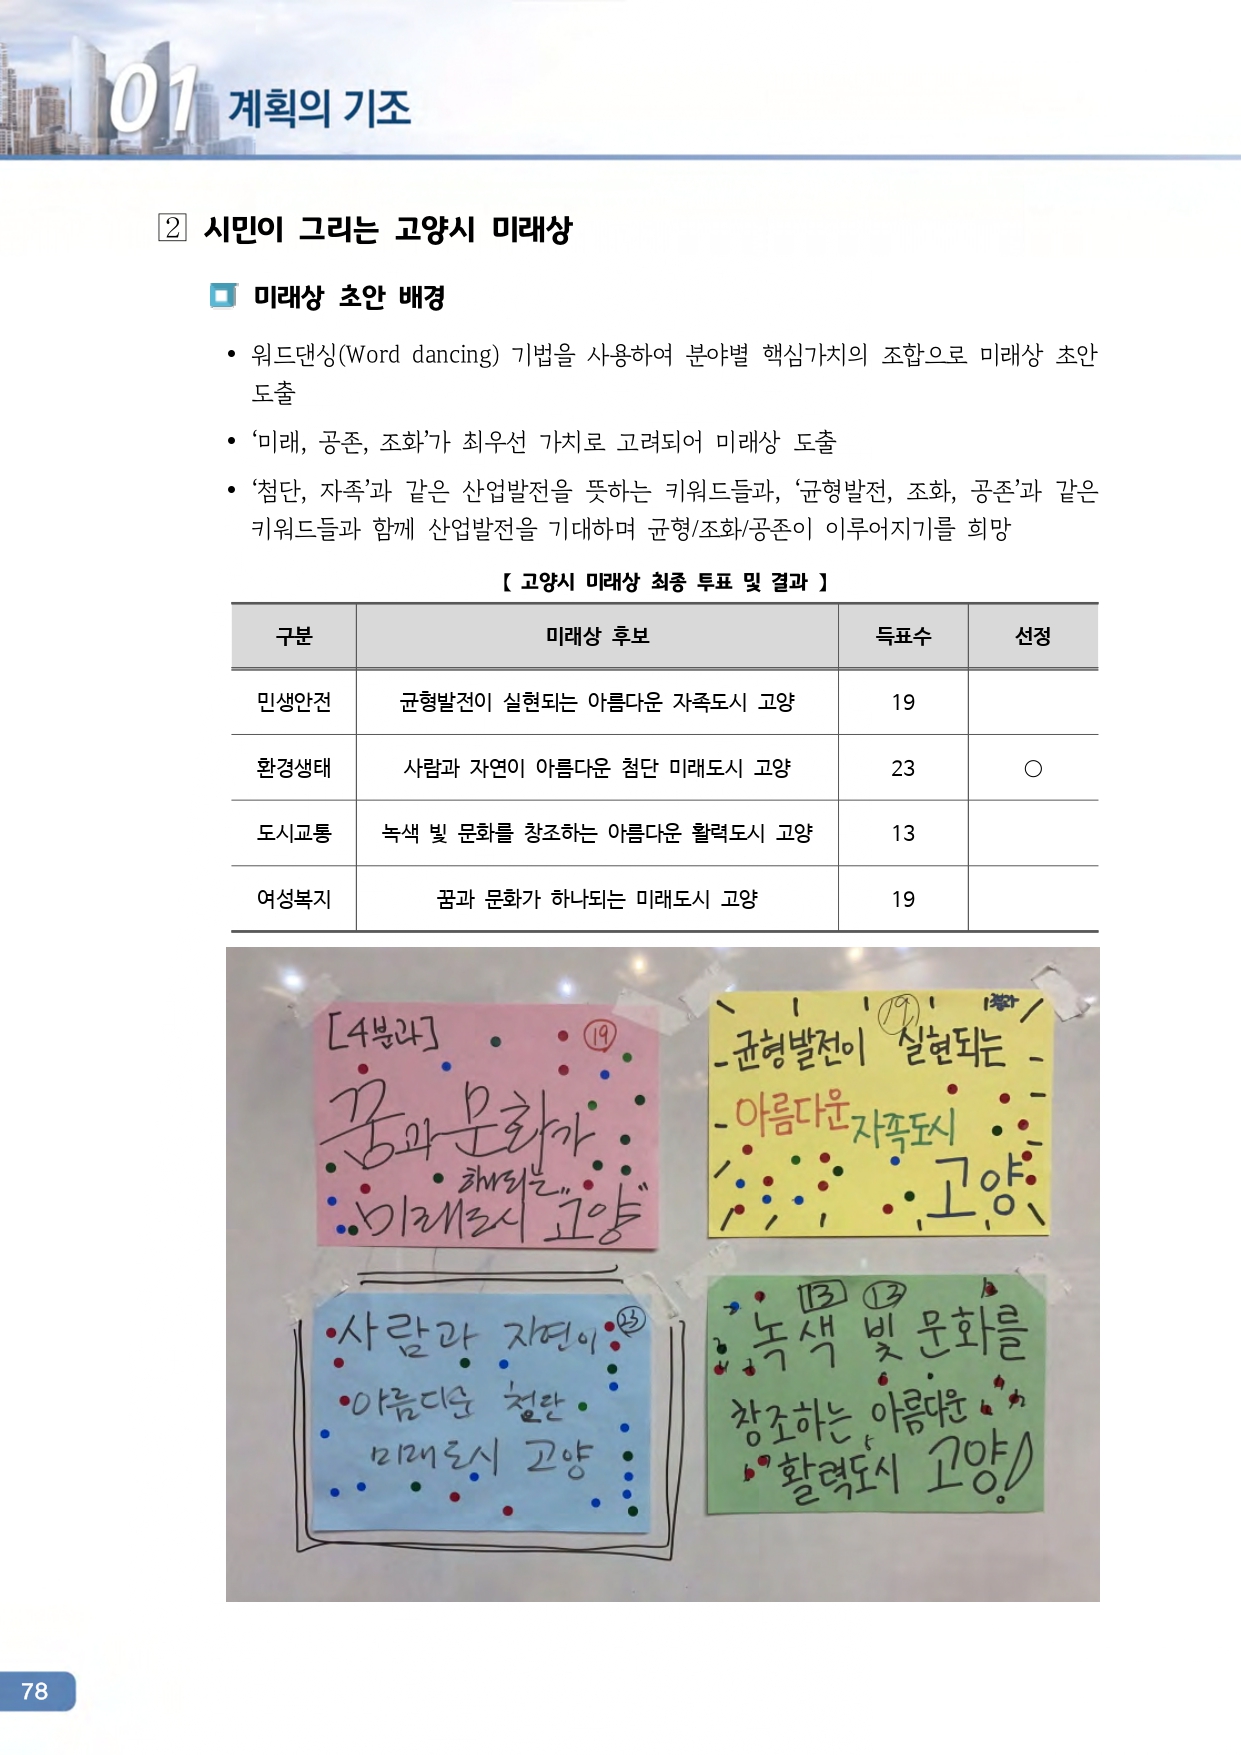 01 계획의 기조
2 시민이 그리는 고양시 미래상
미래상 초안 배경
• 워드댄싱(Word dancing) 기법을 사용하여 분야별 핵심가치의 조합으로 미래상 초안
도출
• ‘미래, 공존, 조화’가 최우선 가치로 고려되어 미래상 도출
• ‘첨단, 자족’과 같은 산업발전을 뜻하는 키워드들과, ‘균형발전, 조화, 공존’과 같은
키워드들과 함께 산업발전을 기대하며 균형/조화/공존이 이루어지기를 희망
【 고양시 미래상 최종 투표 및 결과 】
구분 미래상 후보 득표수 선정
민생안전 균형발전이 실현되는 아름다운 자족도시 고양 19
환경생태 사람과 자연이 아름다운 첨단 미래도시 고양 23 ○
도시교통 녹색 빛 문화를 창조하는 아름다운 활력도시 고양 13
여성복지 꿈과 문화가 하나되는 미래도시 고양 19
[4분과] 19
꿈과 문화가
하나되는
미래도시 "고양"
19 1분과
균형발전이 실현되는
아름다운 자족도시
고양
23
사람과 자연이
아름다운 첨단
미래도시 고양
13 13
녹색 빛 문화를
창조하는 아름다운
활력도시 고양!
78